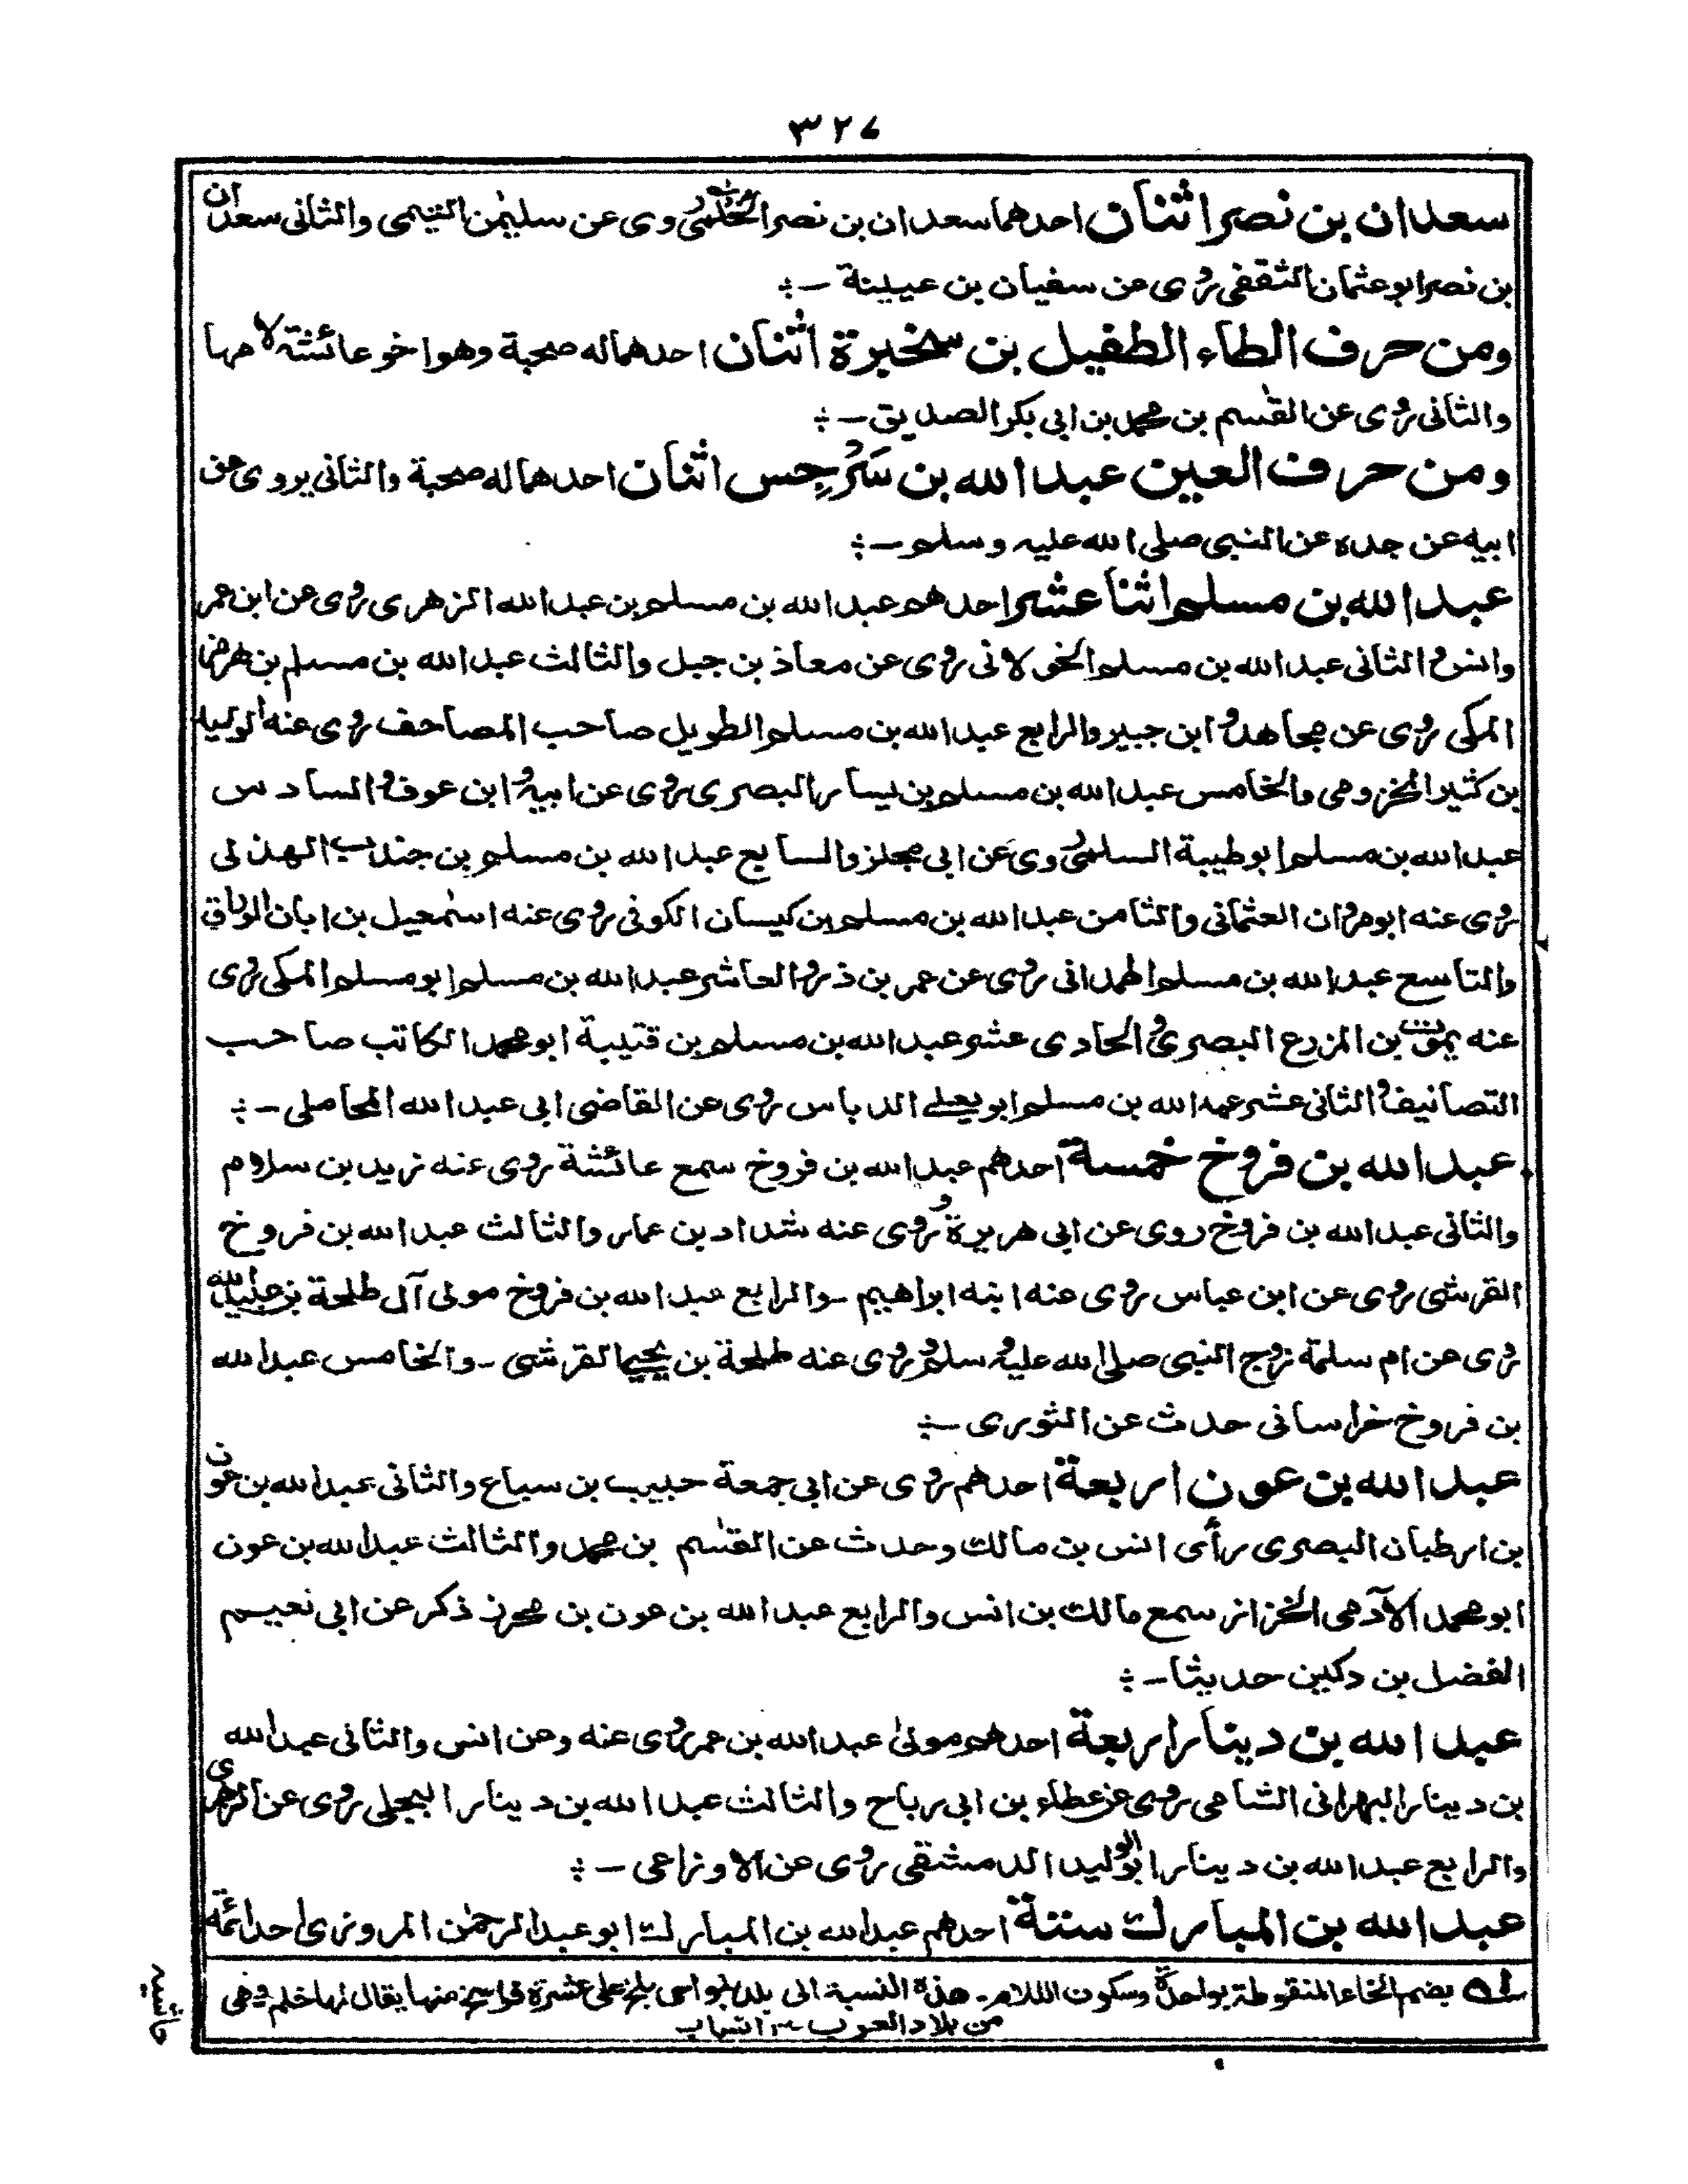 ٣٢٧
سعدان بن نصر اثنان احدهما سعدان بن نصر الخلمى روى عن سليمٰن التيمى والثانى سعدان
بن نصر ابو عثمان الثقفى روى عن سفيان بن عيينة -؞
ومن حرف الطاء الطفيل بن سخبرة اثنان احدهما له صحبة وهو اخو عائشة لامها
والثانى روى عن القٰسم بن محمد بن ابى بكر الصديق -؞
ومن حرف العين عبد الله بن سَرْجِس اثنان احدهما له صحبة والثانى يروى عن
ابيه عن جده عن النبى صلى الله عليه وسلم -؞
عبد الله بن مسلم اثنا عشر احدهم عبد الله بن مسلم بن عبد الله الزهرى روى عن ابن عمر
وانس والثانى عبد الله بن مسلم الخولانى روى عن معاذ بن جبل والثالث عبد الله بن مسلم بن هرمز
المكى روى عن مجاهد وابن جبير والرابع عبد الله بن مسلم الطويل صاحب المصاحف روى عنه الوليد
بن كثير المخزومى والخامس عبد الله بن مسلم بن يسار البصرى روى عن ابيه وابن عوف والسادس
عبد الله بن مسلم ابو طيبة السلمى روى عن ابى مجلز والسابع عبد الله بن مسلم بن جندب الهذلى
روى عنه ابو مروان العثمانى والثامن عبد الله بن مسلم بن كيسان الكوفى روى عنه اسمٰعيل بن ابان الوراق
والتاسع عبد الله بن مسلم الهمدانى روى عن عمر بن ذر والعاشر عبد الله بن مسلم ابو مسلم المكى روى
عنه يموت بن المزرع البصرى والحادى عشر عبد الله بن مسلم بن قتيبة ابو محمد الكاتب صاحب
التصانيف والثانى عشر عبد الله بن مسلم ابو يعلے الدباس روى عن القاضى ابى عبد الله المحاملى -؞
عبد الله بن فروخ خمسة احدهم عبد الله بن فروخ سمع عائشة روى عنه زيد بن سلام
والثانى عبد الله بن فروخ روى عن ابى هريرة وروى عنه شداد بن عمار والثالث عبد الله بن فروخ
القرشى روى عن ابن عباس روى عنه ابنه ابراهيم - والرابع عبد الله بن فروخ مولى آل طلحة بن عبيد الله
روى عن ام سلمة زوج النبى صلى الله عليه وسلم وروى عنه طلحة بن يحيى القرشى - والخامس عبد الله
بن فروخ خراسانى حدث عن الثورى -؞
عبد الله بن عون اربعة احدهم روى عن ابى جمعة حبيب بن سباع والثانى عبد الله بن عون
بن ارطبان البصرى رأى انس بن مالك وحدث عن القٰسم بن محمد والثالث عبد الله بن عون
ابو محمد الآدمى الخزاز سمع مالك بن انس والرابع عبد الله بن عون بن محرز ذكر عن ابى نعيم
الفضل بن دكين حديثا -؞
عبد الله بن دينار اربعة احدهم مولىٰ عبد الله بن عمر روى عنه وعن انس والثانى عبد الله
بن دينار البهرانى الشامى روى عن عطاء بن ابى رباح والثالث عبد الله بن دينار البجلى روى عن الزهرى
والرابع عبد الله بن دينار ابو الوليد الدمشقى روى عن الاوزاعى -؞
عبد الله بن المبارك ستة احدهم عبد الله بن المبارك ابو عبد الرحمٰن المروزى احد ائمة
حاشيه
بضم الخاء المنقوطة بواحدة وسكون اللام - هذه النسبة الى بلد بنواحى بلخ على عشرة فراسخ منها يقال لها خلم وهى
من بلاد العرب انساب